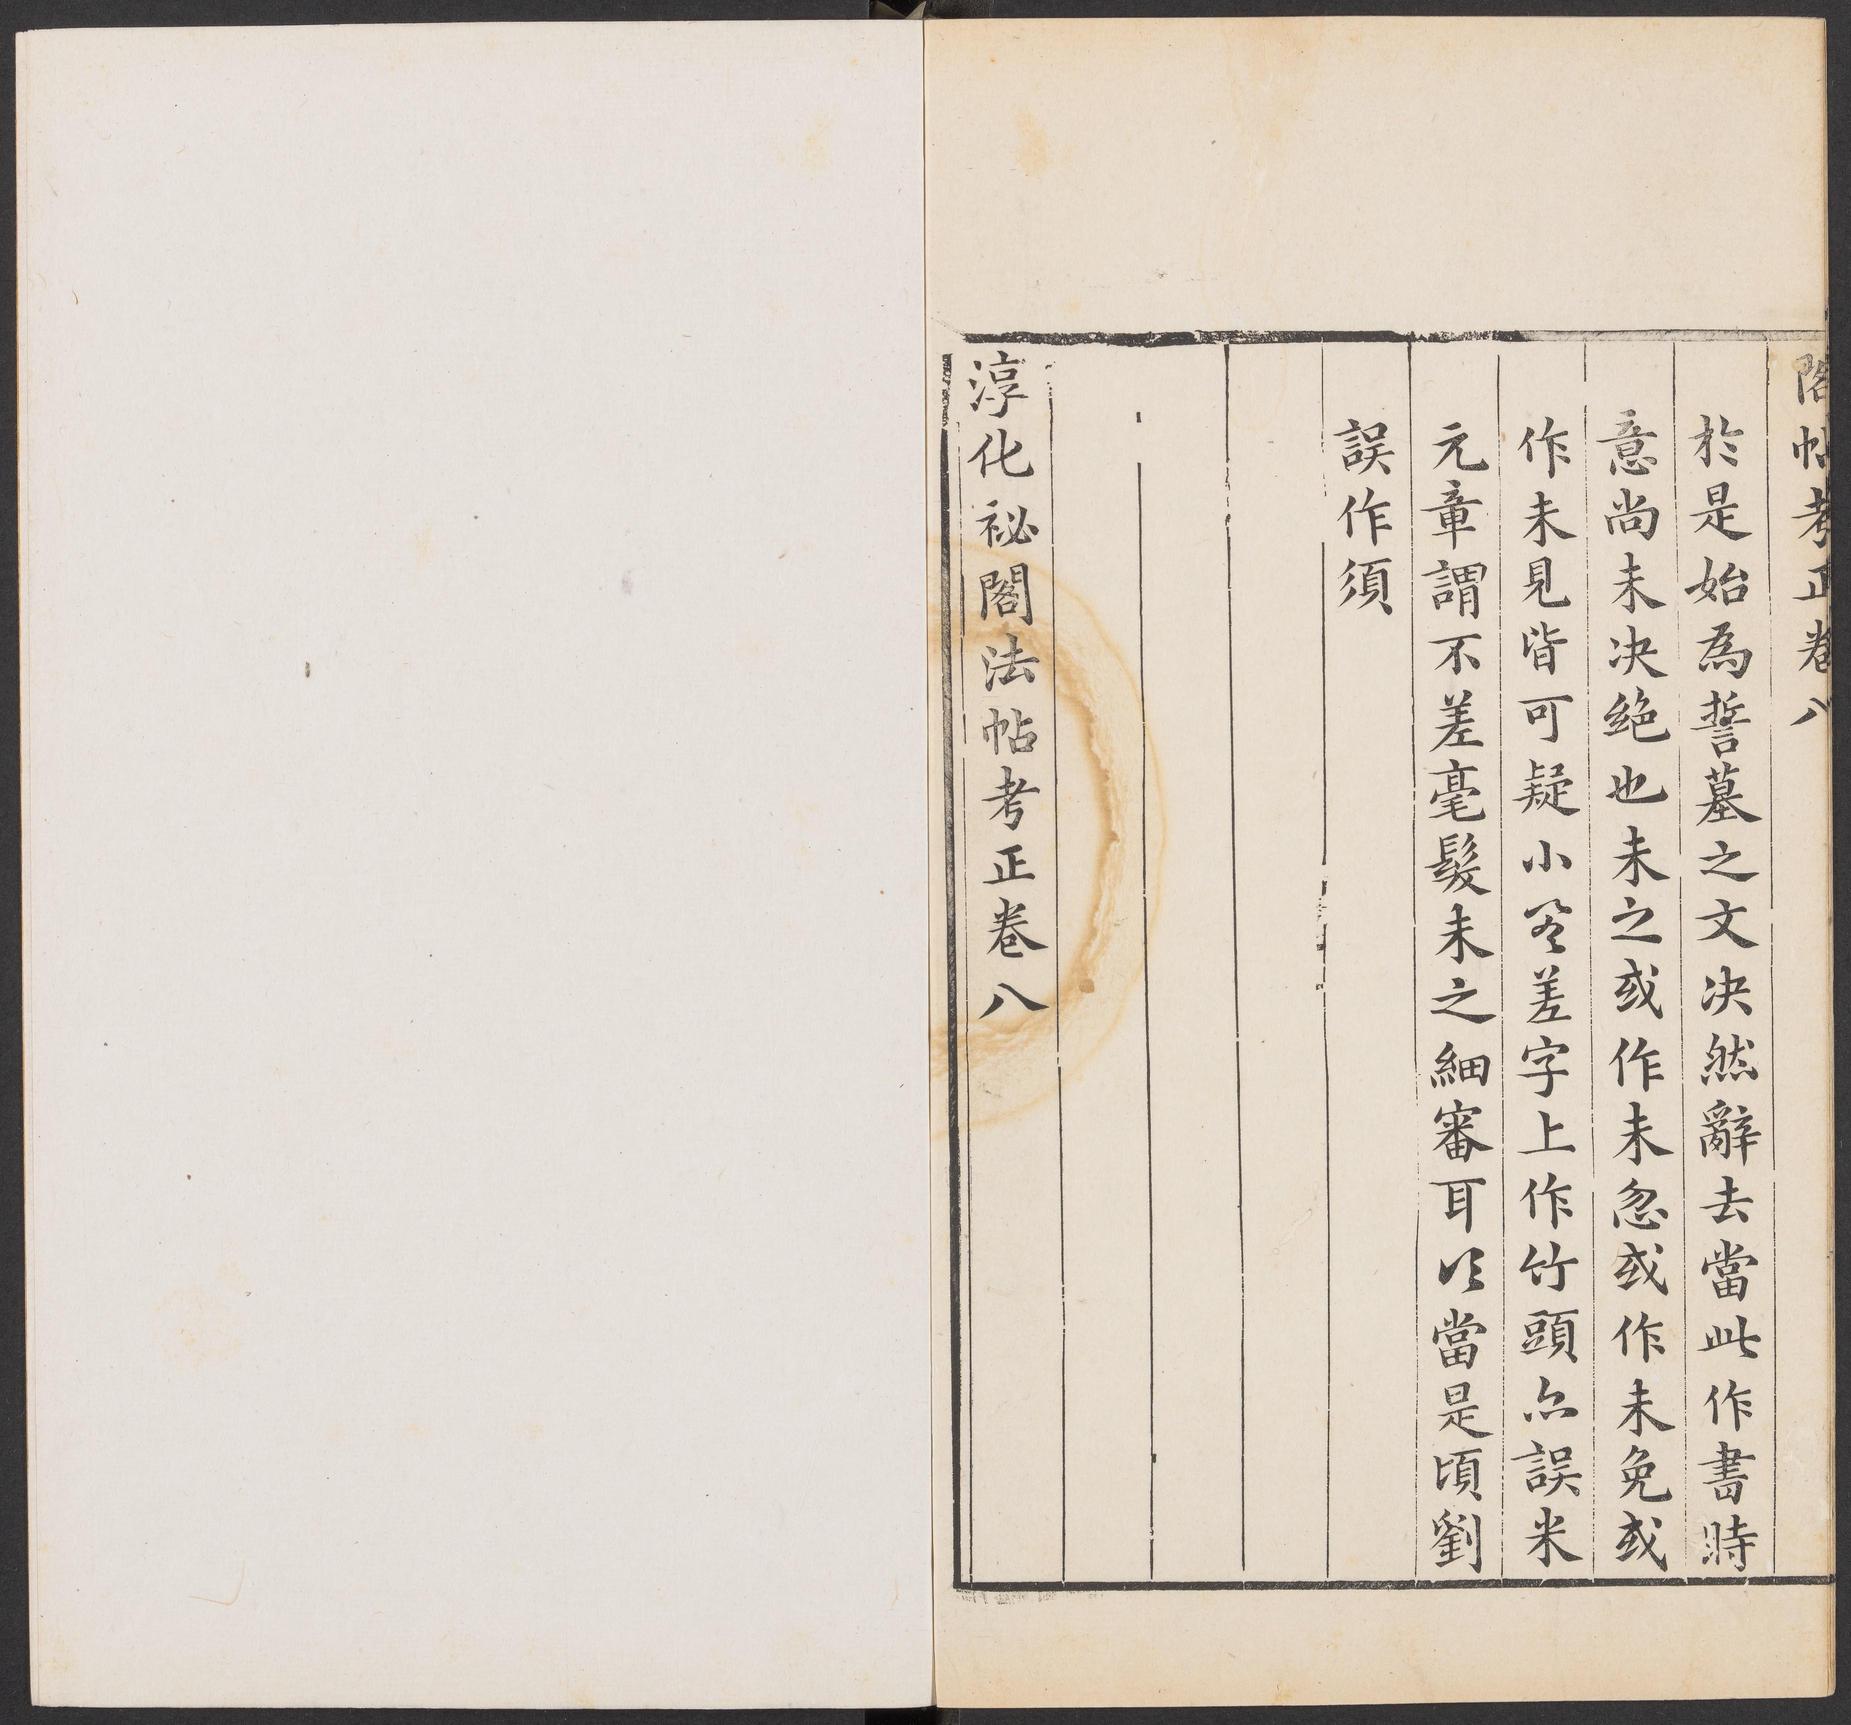 閣帖考正卷八
於是始為誓墓之文决然辭去當此作書時
意尚未决绝也未之或作未忽或作未免或
作未見皆可疑小差字上作竹頭亦誤米
元章謂不差毫髮未之細審耳當是頃劉
誤作須
淳化祕閣法帖考正卷八